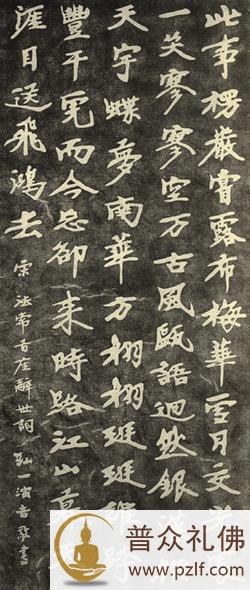 此事楞嚴嘗露布梅華雪月交光處
一笑寥寥空万古風甌語迥然銀漢橫
天宇蝶夢南華方栩栩班班誰跨
豐干虎而今忘卻來時路江山暮天
涯目送飛鴻去
宋法常首座辭世詞 弘一演音敬書
普众礼佛
www.pzlf.com